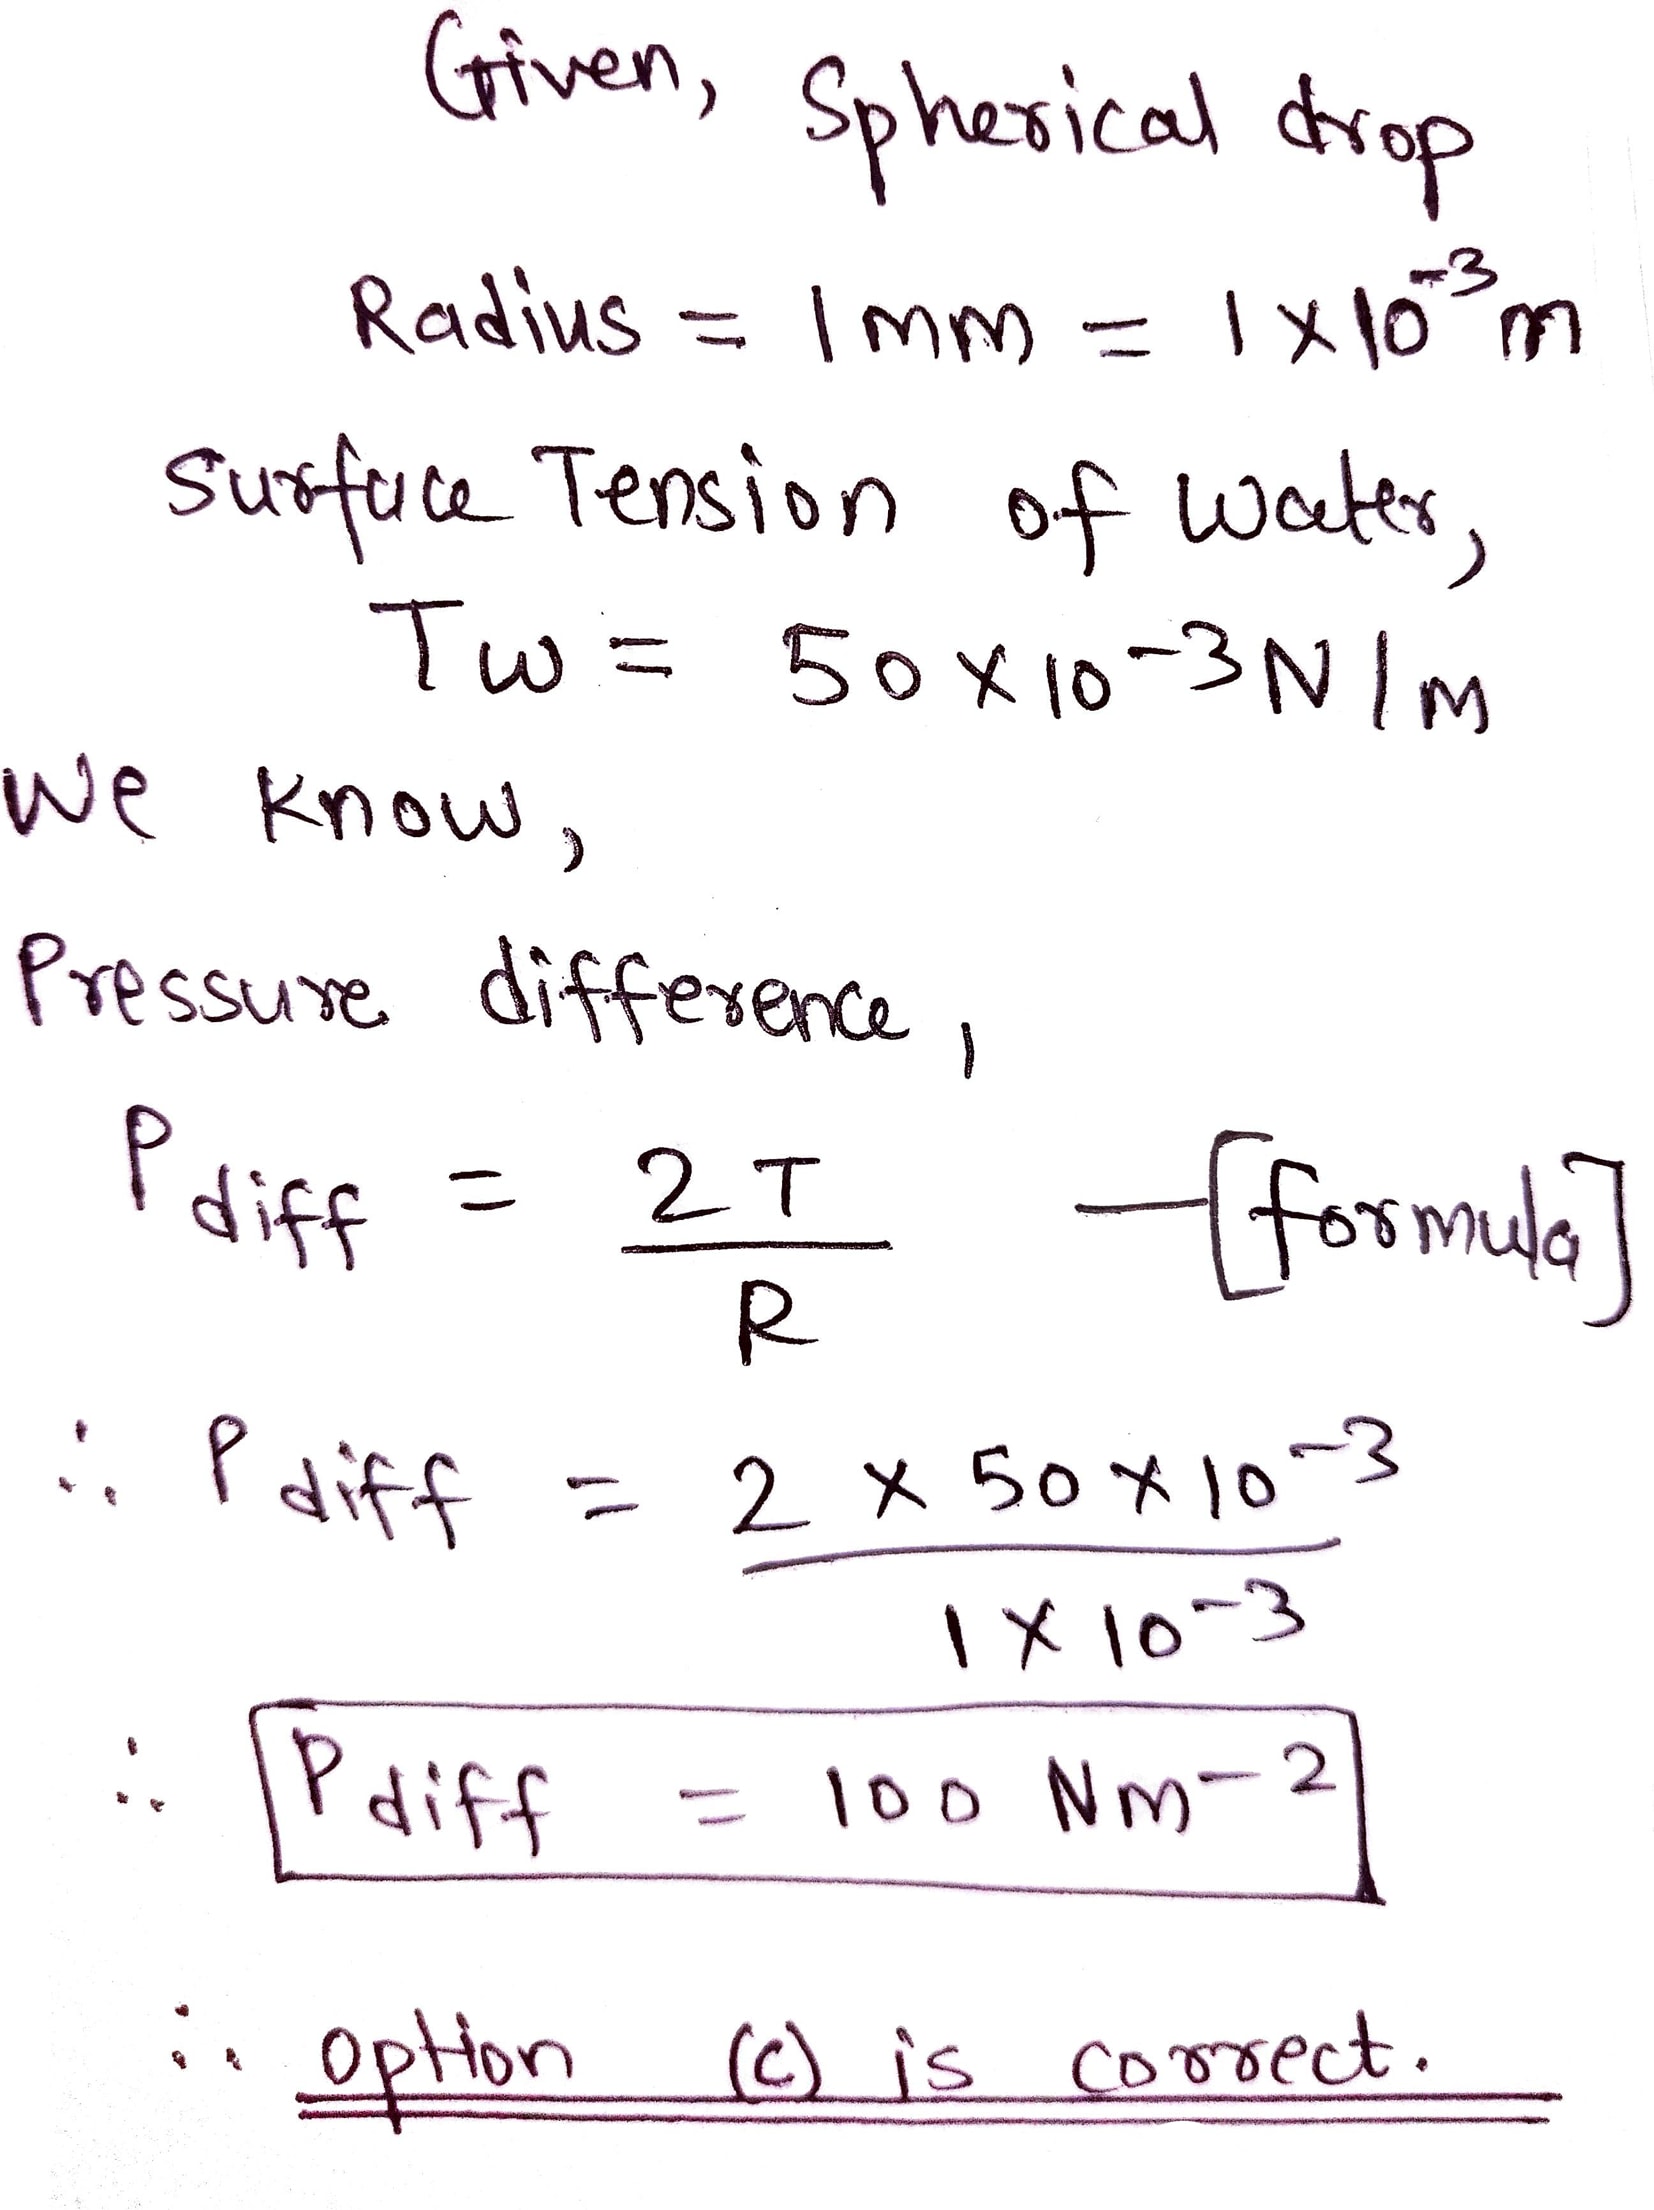 Given, Spherical drop
Radius = 1mm = 1 × 10⁻³ m
Surface Tension of water,
Tw = 50 × 10⁻³ N/m
We know,
Pressure difference,
P diff = 2T / R —[formula]
∴ P diff = 2 × 50 × 10⁻³ / 1 × 10⁻³
∴ P diff = 100 Nm⁻²
∴ option (c) is correct.